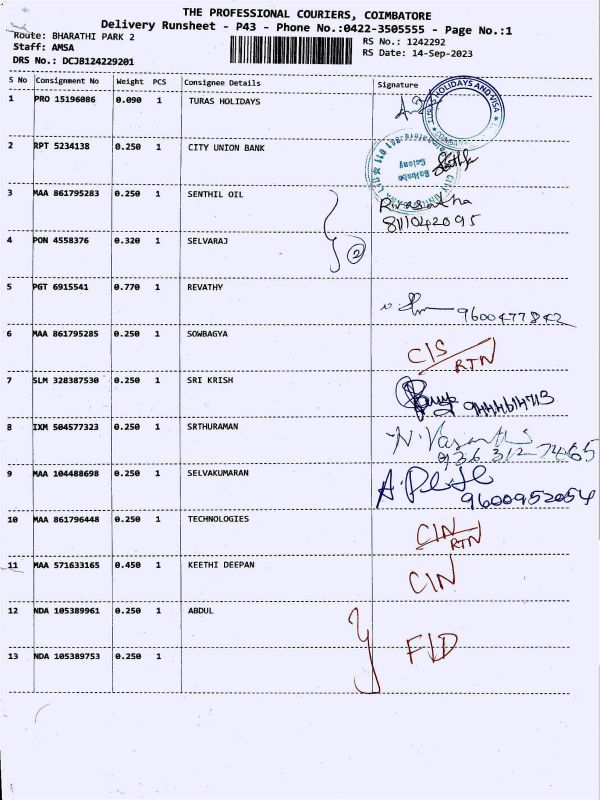 THE PROFESSIONAL COURIERS, COIMBATORE
Delivery Runsheet - P43 - Phone No.:0422-3505555 - Page No.:1
Route: BHARATHI PARK 2
RS No.: 1242292
Staff: AMSA
RS Date: 14-Sep-2023
DRS No.: DCJB124229201
S No Consignment No Weight PCS Consignee Details Signature
1 PRO 15196086 0.090 1 TURAS HOLIDAYS
TURAS HOLIDAYS AND VISA
2 RPT 5234138 0.250 1 CITY UNION BANK
3 MAA 861795283 0.250 1 SENTHIL OIL
8111042095
4 PON 4558376 0.320 1 SELVARAJ
2
5 PGT 6915541 0.770 1 REVATHY
9600477842
6 MAA 861795285 0.250 1 SOWBAGYA
C/S
RTN
7 SLM 328387530 0.250 1 SRI KRISH
9444614713
8 IXM 504577323 0.250 1 SRTHURAMAN
N. Vasantha
936 312 7465
9 MAA 104488698 0.250 1 SELVAKUMARAN
9600952054
10 MAA 861796448 0.250 1 TECHNOLOGIES
CIN
RTN
11 MAA 571633165 0.450 1 KEETHI DEEPAN
CIN
12 NDA 105389961 0.250 1 ABDUL
F/D
13 NDA 105389753 0.250 1